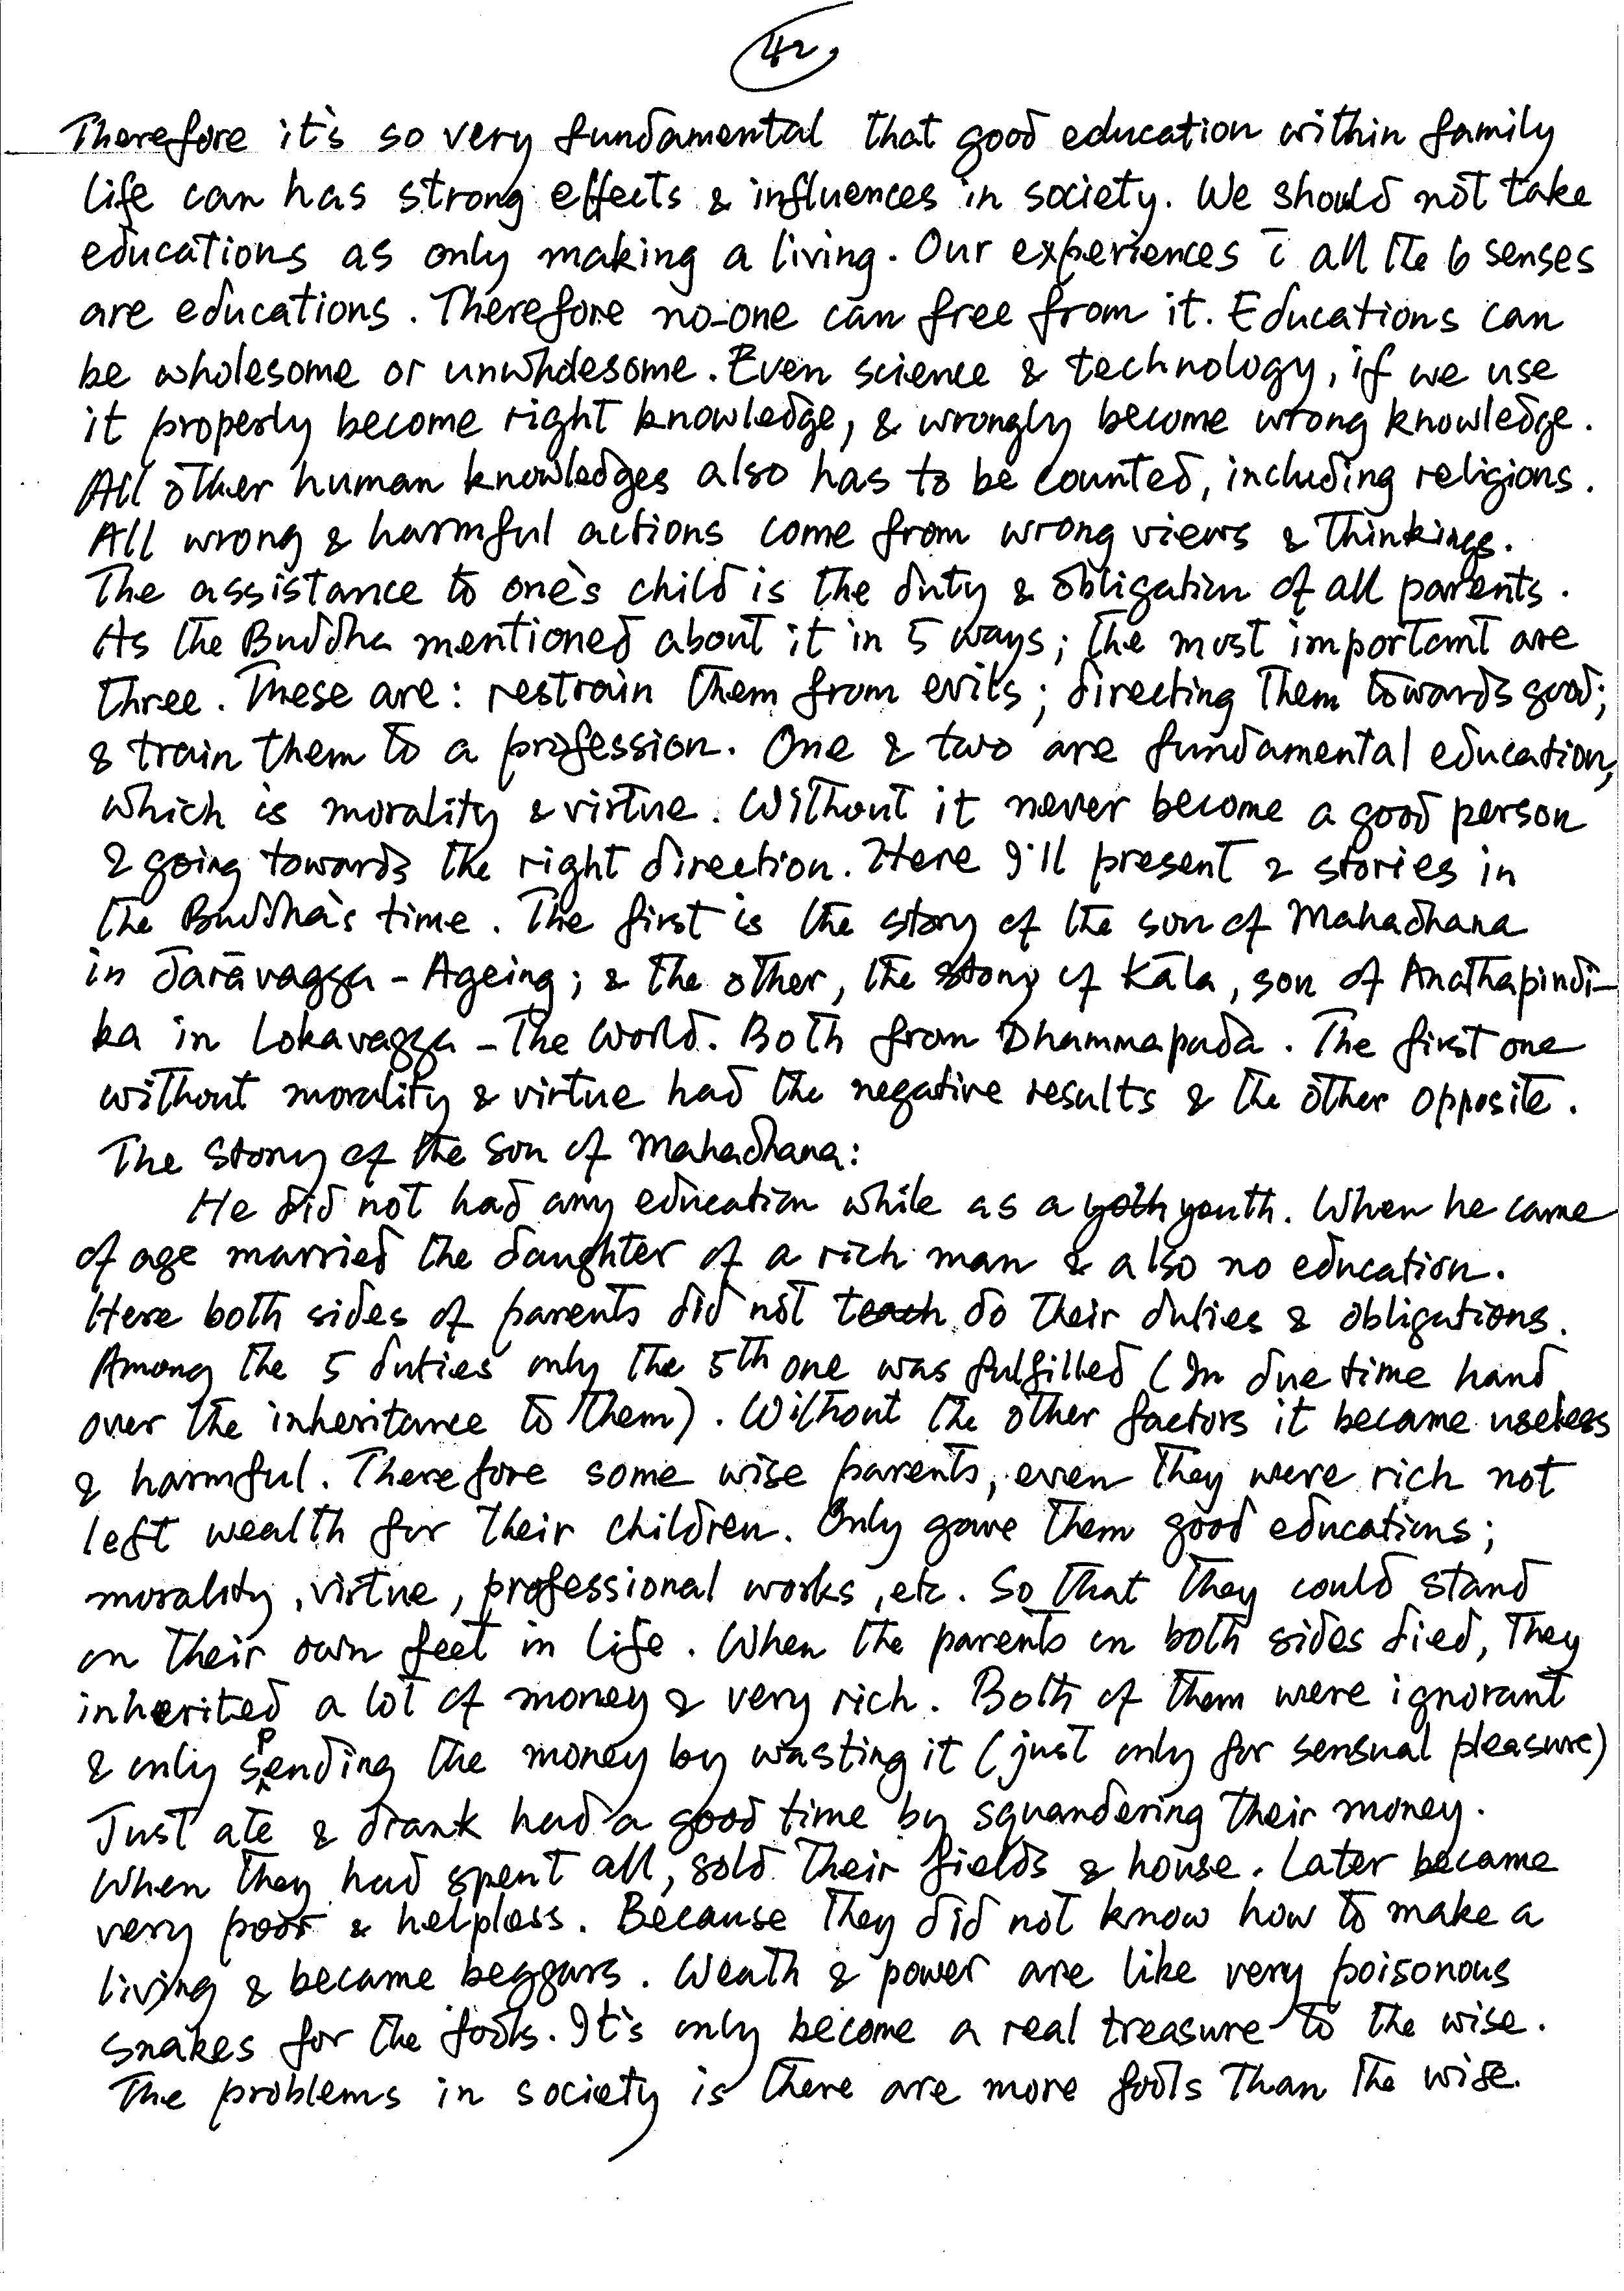 42,
Therefore it's so very fundamental that good education within family
life can has strong effects & influences in society. We should not take
educations as only making a living. Our experiences c̄ all the 6 senses
are educations. Therefore no-one can free from it. Educations can
be wholesome or unwholesome. Even science & technology, if we use
it properly become right knowledge, & wrongly become wrong knowledge.
All other human knowledges also has to be counted, including religions.
All wrong & harmful actions come from wrong views & thinkings.
The assistance to one's child is the duty & obligation of all parents.
As the Buddha mentioned about it in 5 ways; the most important are
three. These are: restrain them from evils; directing them towards good;
& train them to a profession. One & two are fundamental education,
which is morality & virtue. Without it never become a good person
& going towards the right direction. Here I'll present 2 stories in
the Buddha's time. The first is the story of the son of Mahadhana
in Jarāvagga - Ageing; & the other, the story of Kāla, son of Anathapindi-
ka in Lokavagga - The World. Both from Dhammapada. The first one
without morality & virtue had the negative results & the other opposite.
The story of the son of Mahadhana:
He did not had any education while as a yoth youth. When he came
of age married the daughter of a rich man & also no education.
Here both sides of parents did not teach do their duties & obligations.
Among the 5 duties only the 5th one was fulfilled (In due time hand
over the inheritance to them). Without the other factors it became useless
& harmful. Therefore some wise parents, even they were rich not
left wealth for their children. Only gave them good educations;
morality, virtue, professional works, etc. So that they could stand
on their own feet in life. When the parents on both sides died, they
inherited a lot of money & very rich. Both of them were ignorant
& only spending the money by wasting it (just only for sensual pleasure)
Just ate & drank had a good time by squandering their money.
When they had spent all, sold their fields & house. Later became
very poor & helpless. Because they did not know how to make a
living & became beggars. Weath & power are like very poisonous
snakes for the fools. It's only become a real treasure to the wise.
The problems in society is there are more fools than the wise.